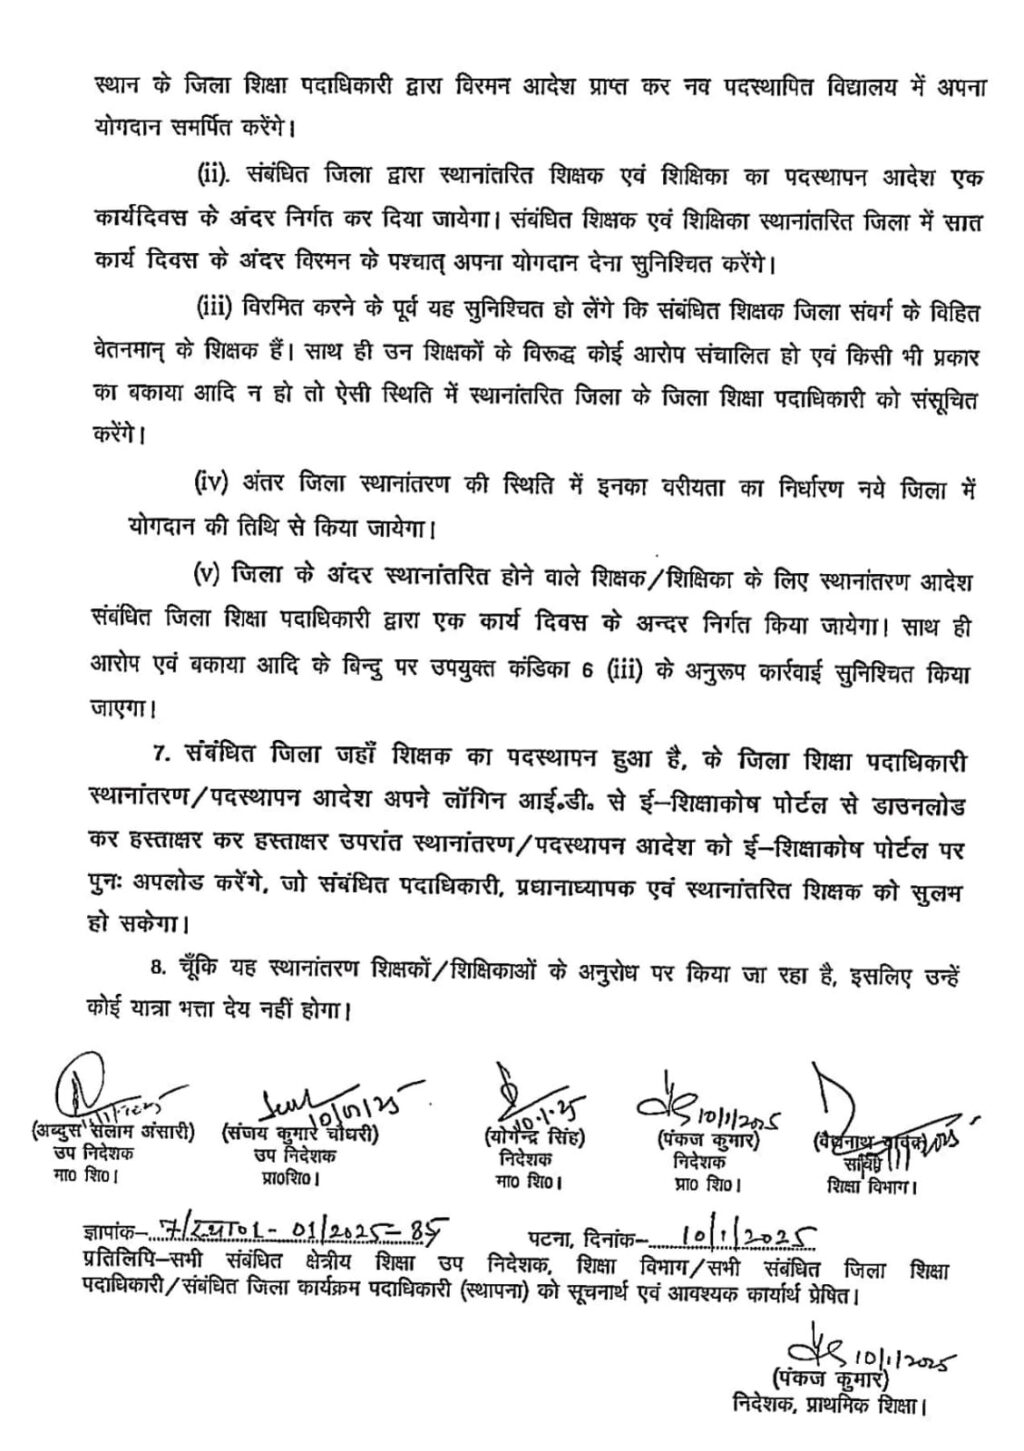 स्थान के जिला शिक्षा पदाधिकारी द्वारा विरमन आदेश प्राप्त कर नव पदस्थापित विद्यालय में अपना
योगदान समर्पित करेंगे।
(ii). संबंधित जिला द्वारा स्थानांतरित शिक्षक एवं शिक्षिका का पदस्थापन आदेश एक
कार्यदिवस के अंदर निर्गत कर दिया जायेगा। संबंधित शिक्षक एवं शिक्षिका स्थानांतरित जिला में सात
कार्य दिवस के अंदर विरमन के पश्चात् अपना योगदान देना सुनिश्चित करेंगे।
(iii) विरमित करने के पूर्व यह सुनिश्चित हो लेंगे कि संबंधित शिक्षक जिला संवर्ग के विहित
वेतनमान् के शिक्षक हैं। साथ ही उन शिक्षकों के विरूद्ध कोई आरोप संचालित हो एवं किसी भी प्रकार
का बकाया आदि न हो तो ऐसी स्थिति में स्थानांतरित जिला के जिला शिक्षा पदाधिकारी को संसूचित
करेंगे।
(iv) अंतर जिला स्थानांतरण की स्थिति में इनका वरीयता का निर्धारण नये जिला में
योगदान की तिथि से किया जायेगा।
(v) जिला के अंदर स्थानांतरित होने वाले शिक्षक/शिक्षिका के लिए स्थानांतरण आदेश
संबंधित जिला शिक्षा पदाधिकारी द्वारा एक कार्य दिवस के अन्दर निर्गत किया जायेगा। साथ ही
आरोप एवं बकाया आदि के बिन्दु पर उपयुक्त कंडिका 6 (iii) के अनुरूप कार्रवाई सुनिश्चित किया
जाएगा।
7. संबंधित जिला जहाँ शिक्षक का पदस्थापन हुआ है, के जिला शिक्षा पदाधिकारी
स्थानांतरण/पदस्थापन आदेश अपने लॉगिन आई०डी० से ई–शिक्षाकोष पोर्टल से डाउनलोड
कर हस्ताक्षर कर हस्ताक्षर उपरांत स्थानांतरण/पदस्थापन आदेश को ई–शिक्षाकोष पोर्टल पर
पुनः अपलोड करेंगे, जो संबंधित पदाधिकारी, प्रधानाध्यापक एवं स्थानांतरित शिक्षक को सुलभ
हो सकेगा।
8. चूँकि यह स्थानांतरण शिक्षकों/शिक्षिकाओं के अनुरोध पर किया जा रहा है, इसलिए उन्हें
कोई यात्रा भत्ता देय नहीं होगा।
10/01/25 10.1.25 10/1/2025
(अब्दुस सलाम अंसारी) (संजय कुमार चौधरी) (योगेन्द्र सिंह) (पंकज कुमार) (वैद्यनाथ यादव)
उप निदेशक उप निदेशक निदेशक निदेशक सचिव
मा० शि०। प्रा०शि०। मा० शि०। प्रा० शि०। शिक्षा विभाग।
ज्ञापांक–7/स्था01-01/2025-85 पटना, दिनांक–10/1/2025
प्रतिलिपि–सभी संबंधित क्षेत्रीय शिक्षा उप निदेशक, शिक्षा विभाग/सभी संबंधित जिला शिक्षा
पदाधिकारी/संबंधित जिला कार्यक्रम पदाधिकारी (स्थापना) को सूचनार्थ एवं आवश्यक कार्यार्थ प्रेषित।
10/1/2025
(पंकज कुमार)
निदेशक, प्राथमिक शिक्षा।